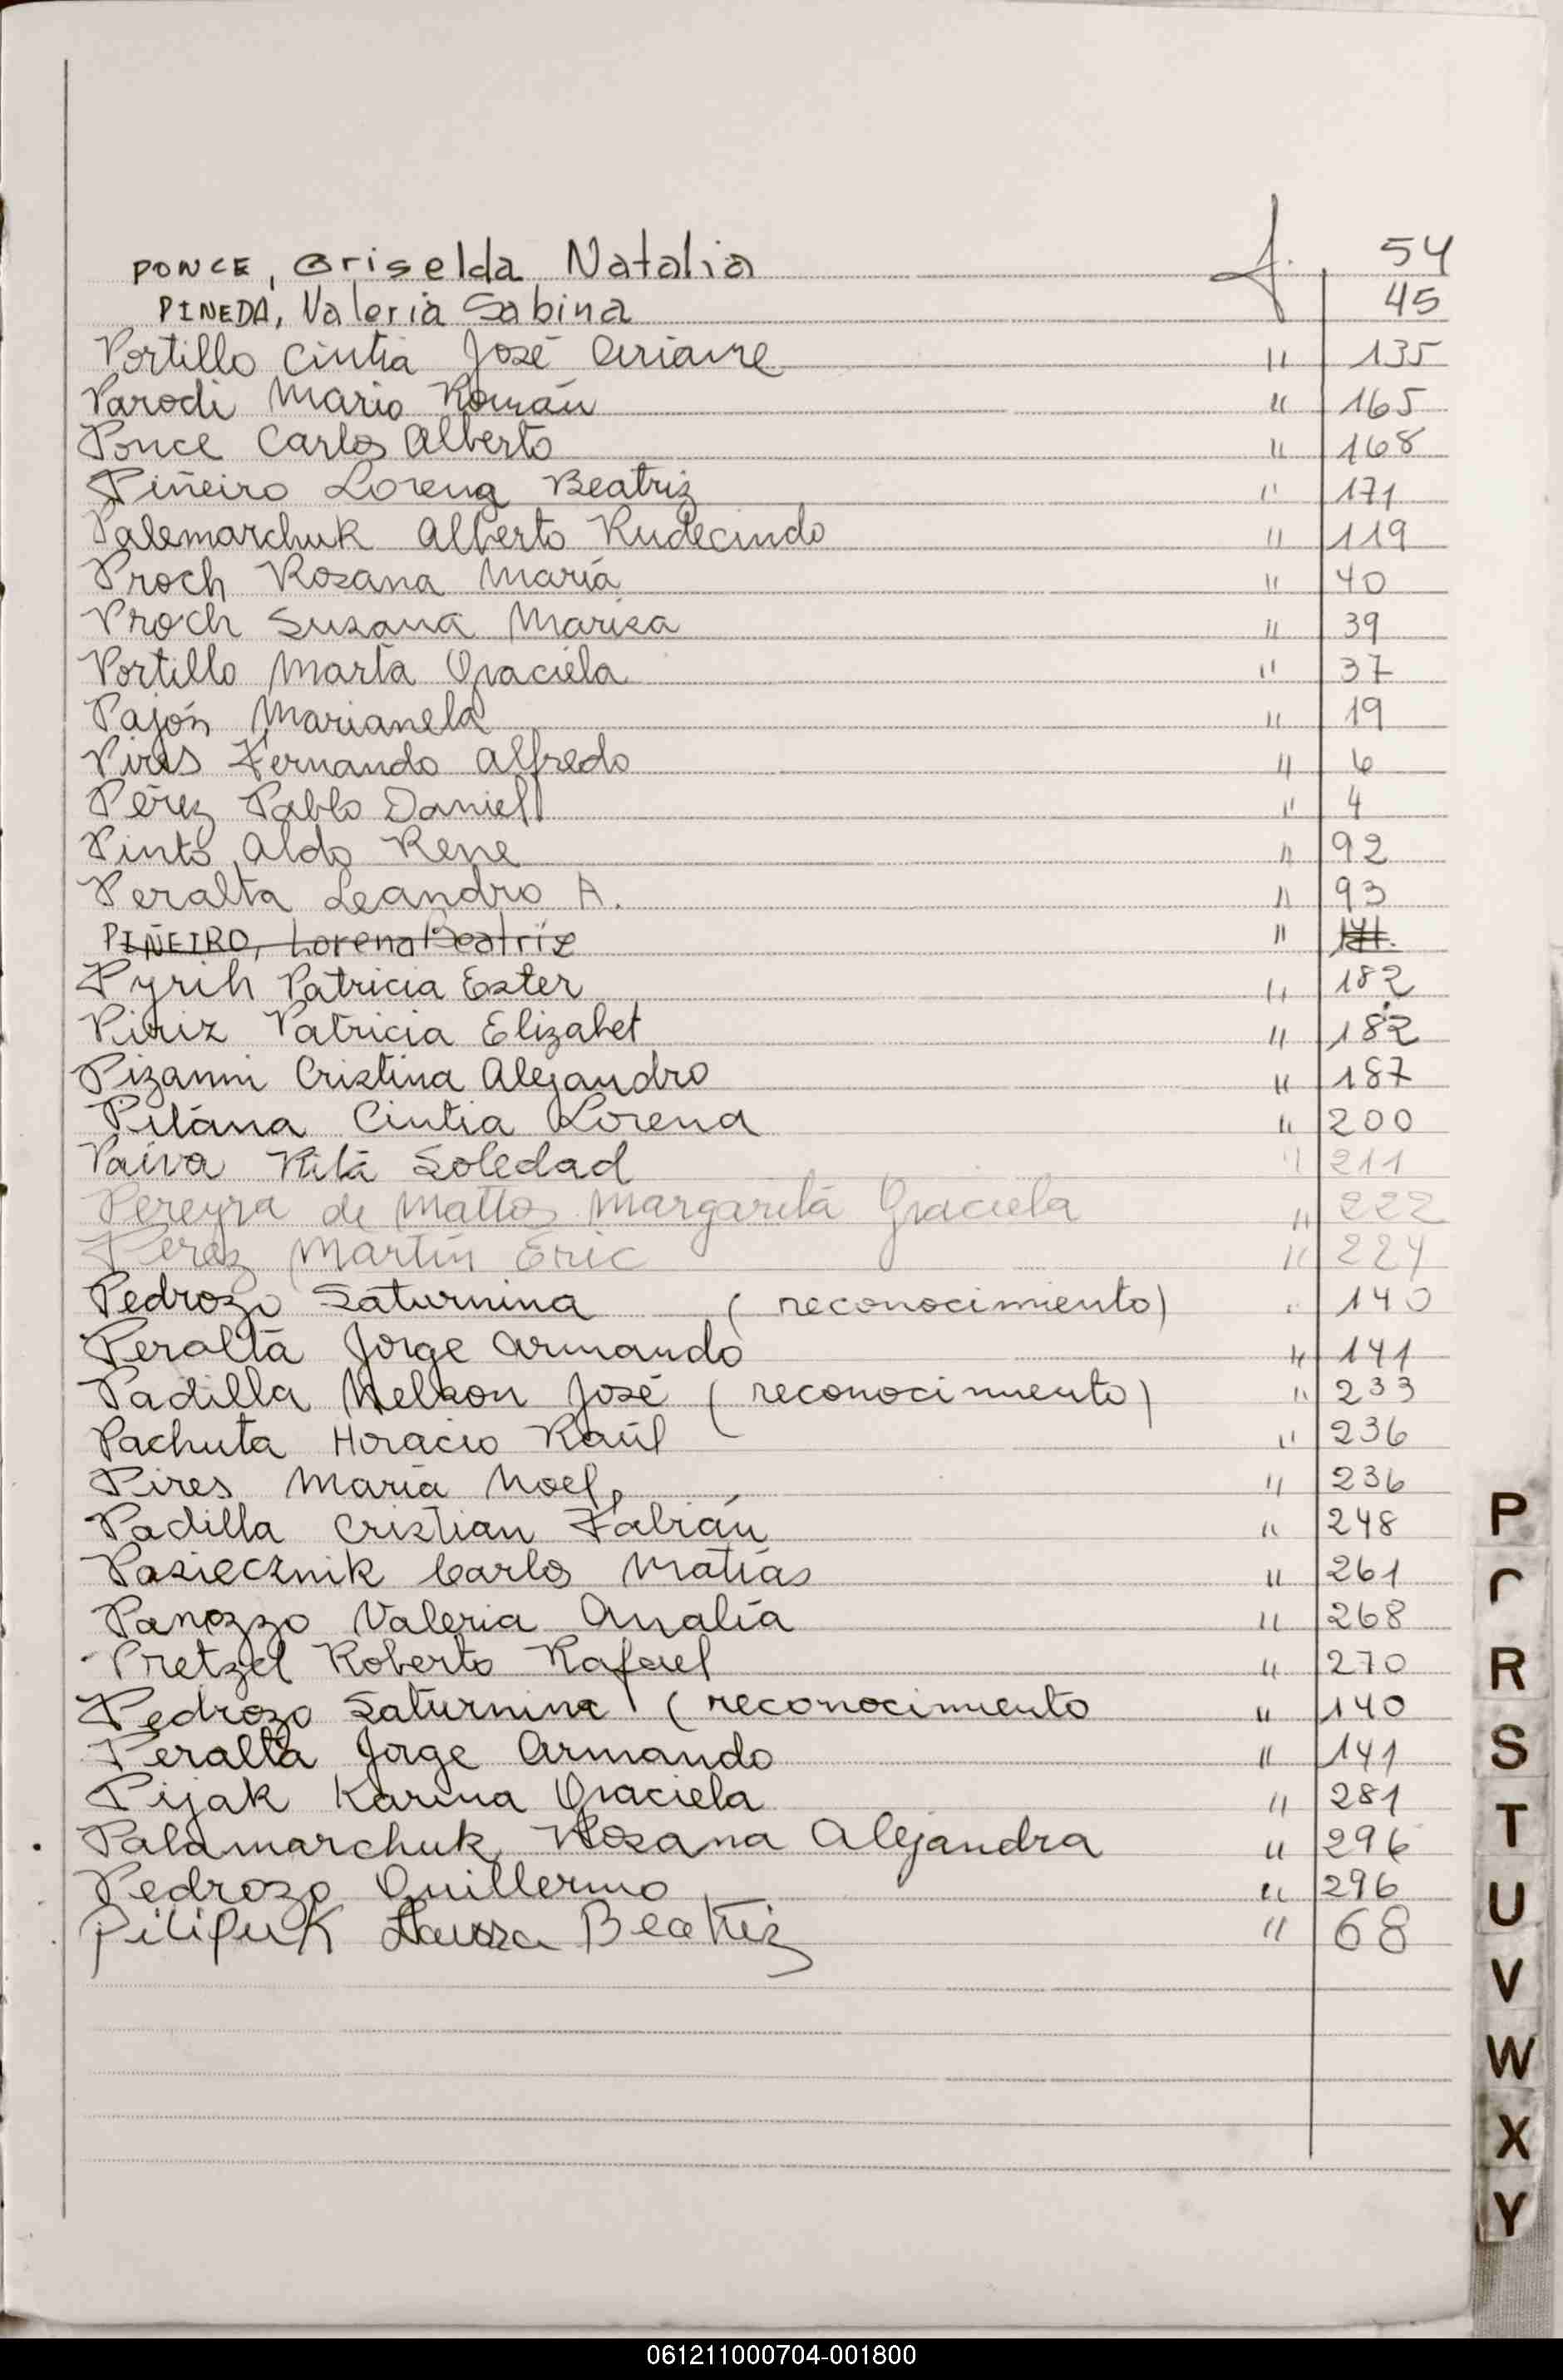 PONCE, Griselda Natalia f. 54
PINEDA, Valeria Sabina 45
Portillo Cintia José Ariane " 135
Parodi Mario Román " 165
Ponce Carlos Alberto " 168
Piñeiro Lorena Beatriz " 171
Palemarchuk Alberto Rudecindo " 119
Proch Rosana María " 40
Proch Susana Marisa " 39
Portillo Marta Graciela " 37
Pajón Marianela " 19
Pires Fernando Alfredo " 6
Pérez Pablo Daniel " 4
Pinto Aldo Rene " 92
Peralta Leandro A. " 93
PIÑEIRO, Lorena Beatriz " 171.
Pyrih Patricia Ester " 182
Piriz Patricia Elizabet " 182
Pizanni Cristina Alejandro " 187
Pitana Cintia Lorena " 200
Paiva Rita Soledad " 211
Pereyra de Mattos Margarita Graciela " 222
Perez Martín Eric " 224
Pedrozo Saturnina (reconocimiento) " 140
Peralta Jorge Armando " 141
Padilla Nelson José (reconocimiento) " 233
Pachuta Horacio Raúl " 236
Pires María Noel " 236
Padilla Cristian Fabián " 248
Pasiecznik Carlos Matías " 261
Panozzo Valeria Analía " 268
Pretzel Roberto Rafael " 270
Pedrozo Saturnina (reconocimiento " 140
Peralta Jorge Armando " 141
Pijak Karina Graciela " 281
Palamarchuk Rosana Alejandra " 296
Pedrozo Guillermo " 296
Pilipuk Laura Beatriz " 68
P
R
S
T
U
V
W
X
Y
061211000704-001800